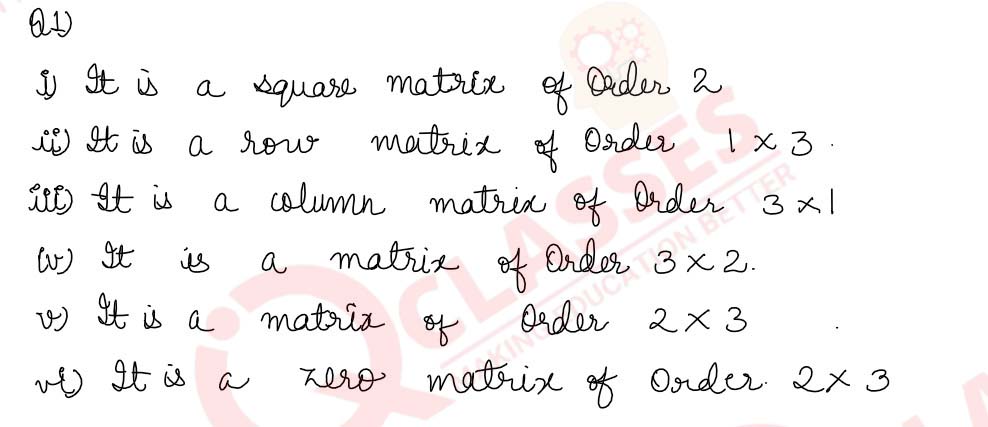 Q1)
i) It is a square matrix of Order 2
ii) It is a row matrix of Order 1 × 3.
iii) It is a column matrix of Order 3 × 1
iv) It is a matrix of Order 3 × 2.
v) It is a matrix of Order 2 × 3.
vi) It is a zero matrix of Order. 2 × 3
CLASSES
MAKING EDUCATION BETTER